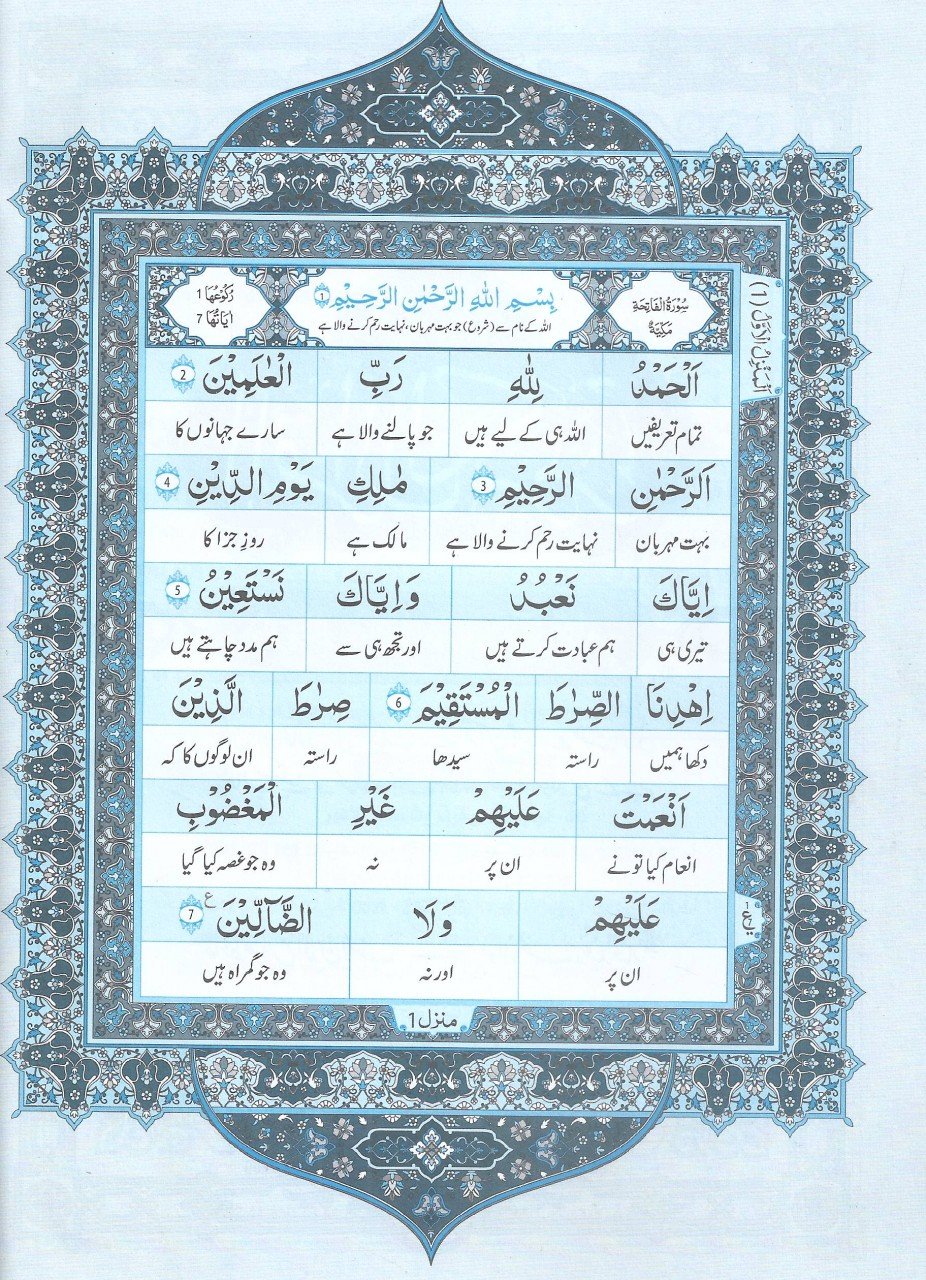 سُوْرَةُ الْفَاتِحَةِ
مَكِّيَّةٌ
بِسْمِ اللّٰهِ الرَّحْمٰنِ الرَّحِيْمِ 1
اللہ کے نام سے (شروع) جو بہت مہربان ، نہایت رحم کرنے والا ہے
رُكُوْعُهَا 1
اٰيَاتُهَا 7
اَلْمَنْزِلُ الْاَوَّلُ (1)
اَلْحَمْدُ لِلّٰهِ رَبِّ الْعٰلَمِيْنَ 2
تمام تعریفیں اللہ ہی کے لیے ہیں جو پالنے والا ہے سارے جہانوں کا
الرَّحْمٰنِ الرَّحِيْمِ 3 مٰلِكِ يَوْمِ الدِّيْنِ 4
بہت مہربان نہایت رحم کرنے والا ہے مالک ہے روزِ جزا کا
اِيَّاكَ نَعْبُدُ وَاِيَّاكَ نَسْتَعِيْنُ 5
تیری ہی ہم عبادت کرتے ہیں اور تجھ ہی سے ہم مدد چاہتے ہیں
اِهْدِنَا الصِّرَاطَ الْمُسْتَقِيْمَ 6 صِرَاطَ الَّذِيْنَ
دکھا ہمیں راستہ سیدھا راستہ ان لوگوں کا کہ
اَنْعَمْتَ عَلَيْهِمْ غَيْرِ الْمَغْضُوْبِ
انعام کیا تو نے ان پر نہ وہ جو غصہ کیا گیا
عَلَيْهِمْ وَلَا الضَّآلِّيْنَ ع 7
ان پر اور نہ وہ جو گمراہ ہیں
منزل 1